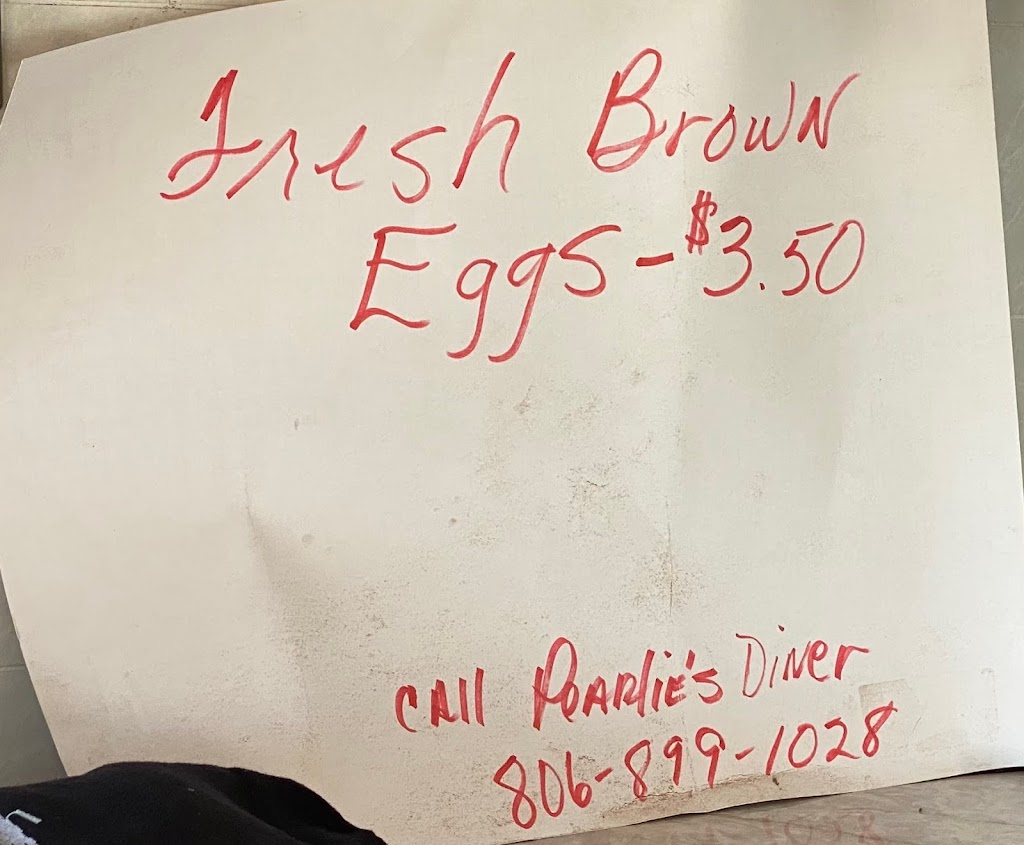 Fresh Brown
Eggs - $3.50
CAll PeARlie's Diner
806-899-1028